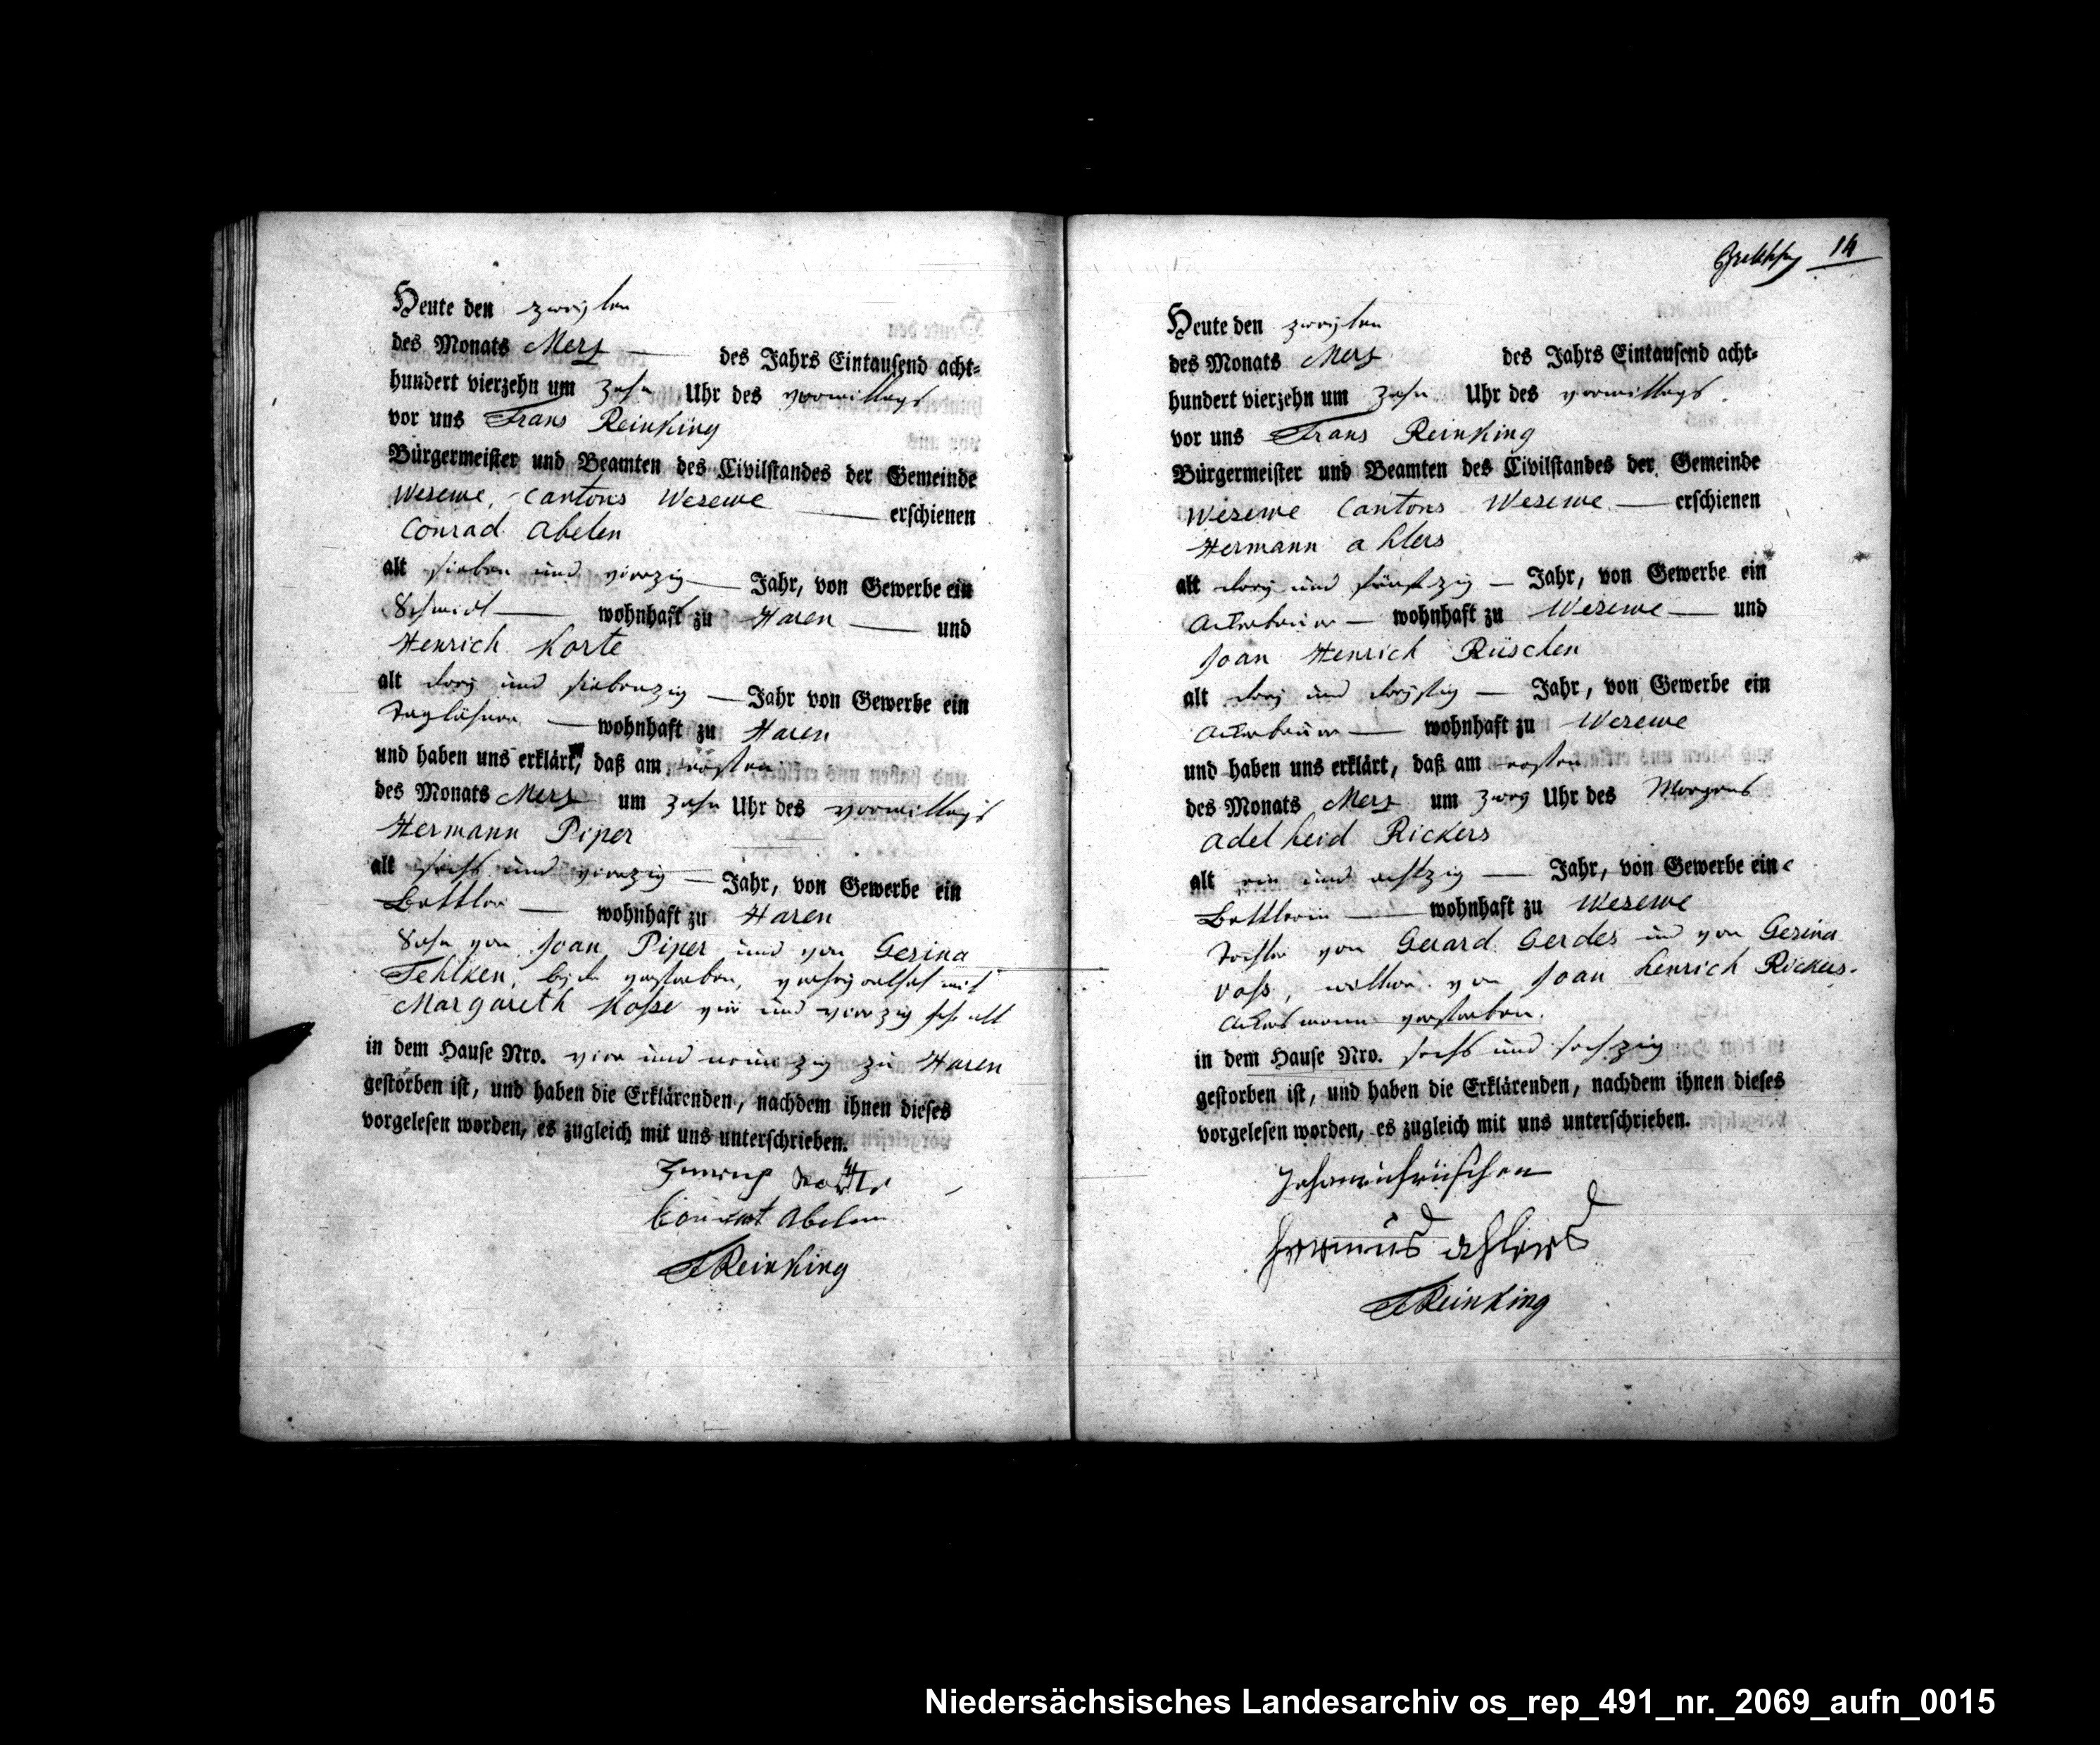 Heute den zweyten
des Monats Merz des Jahrs Eintausend acht-
hundert vierzehn um zehn Uhr des vormittags
vor uns Frans Reinking
Bürgermeister und Beamten des Civilstandes der Gemeinde
Wesewe, Cantons Wesewe erschienen
Conrad Abelen
alt sieben und vierzig Jahr, von Gewerbe ein
Schmidt wohnhaft zu Haren und
Henrich Korte
alt drey und siebenzig Jahr von Gewerbe ein
Taglöhner wohnhaft zu Haren
und haben uns erklärt, daß am ersten
des Monats Merz um zehn Uhr des vormittags
Hermann Piper
alt sechs und vierzig Jahr, von Gewerbe ein
Bettler wohnhaft zu Haren
Sohn von Joan Piper und von Gesina
Tehlken, beyde verstorben, verheyrathet mit
Margareth Kosse vier und vierzig alt
in dem Hause Nro. vier und neunzig zu Haren
gestorben ist, und haben die Erklärenden, nachdem ihnen dieses
vorgelesen worden, es zugleich mit uns unterschrieben.
Abelen
FReinking
14
Heute den zweyten
des Monats Merz des Jahrs Eintausend acht-
hundert vierzehn um zehn Uhr des vormittags
vor uns Frans Reinking
Bürgermeister und Beamten des Civilstandes der Gemeinde
Wesewe Cantons Wesewe erschienen
Hermann Ahlers
alt drey und fünfzig Jahr, von Gewerbe ein
Ackerbauer wohnhaft zu Wesewe und
Joan Henrich Rüschen
alt drey und dreyßig Jahr, von Gewerbe ein
Ackerbauer wohnhaft zu Wesewe
und haben uns erklärt, daß am ersten
des Monats Merz um zwey Uhr des Morgens
Adelheid Rickers
alt ein und achtzig Jahr, von Gewerbe eine
Bettlerin wohnhaft zu Wesewe
Tochter von Gerard Gerdes und von Gesina
Voss, wittwe von Joan Henrich Rickers
Ackersmann verstorben.
in dem Hause Nro. sechs und sechzig
gestorben ist, und haben die Erklärenden, nachdem ihnen dieses
vorgelesen worden, es zugleich mit uns unterschrieben.
Johanrich rüschen
Hermnus ahlers
FReinking
Niedersächsisches Landesarchiv os_rep_491_nr._2069_aufn_0015